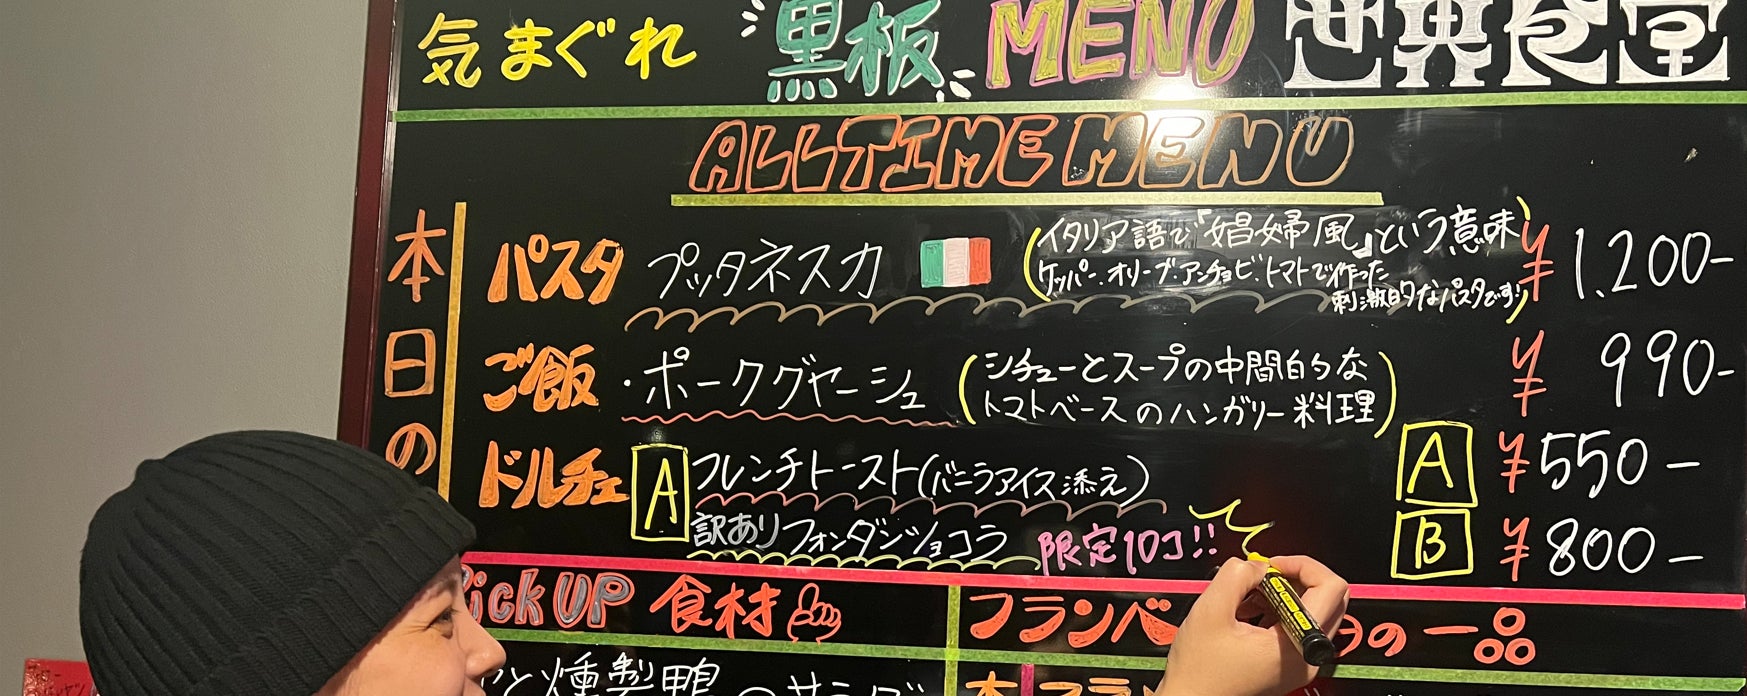 気まぐれ 黒板 MENU 世界食堂
ALL TIME MENU
本日の
パスタ プッタネスカ (イタリア語で「娼婦風」という意味 ¥1,200-
ケッパー、オリーブ・アンチョビ・トマトで作った
刺激的なパスタです!)
ご飯 ・ポークグヤーシュ (シチューとスープの中間的な ¥990-
トマトベースのハンガリー料理)
ドルチェ A フレンチトースト(バニラアイス添え) A ¥550-
訳ありフォンダンショコラ 限定10コ!! B ¥800-
Pick UP 食材
フランベ の一品
と燻製鴨のサラダ
本